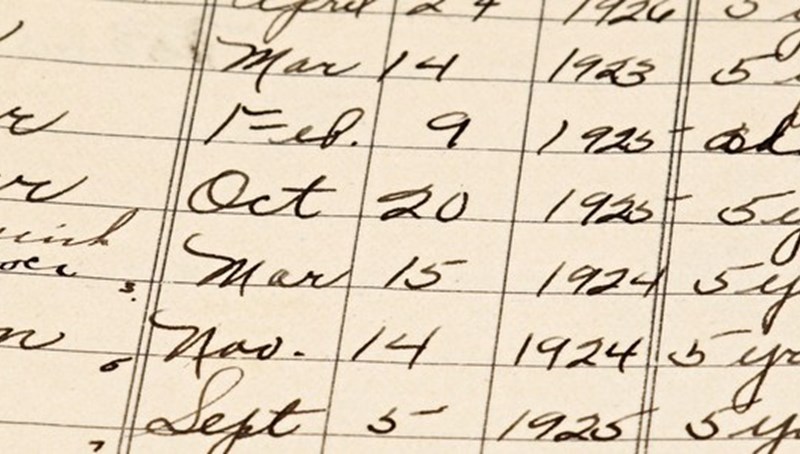 April 24 1926 5 y
Mar 14 1923 5
r Feb. 9 1925
r Oct 20 1925 5 y
Mar 15 1924 5 y
n 6 Nov. 14 1924 5 yr
7 Sept 5 1925 5 y